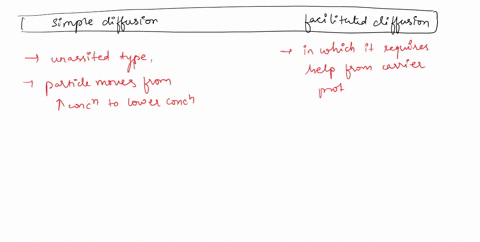 simple diffusion facilitated diffusion
→ unassited type,
→ particle moves from
↑ concⁿ to lower concⁿ
→ in which it requires
help from carrier
prot